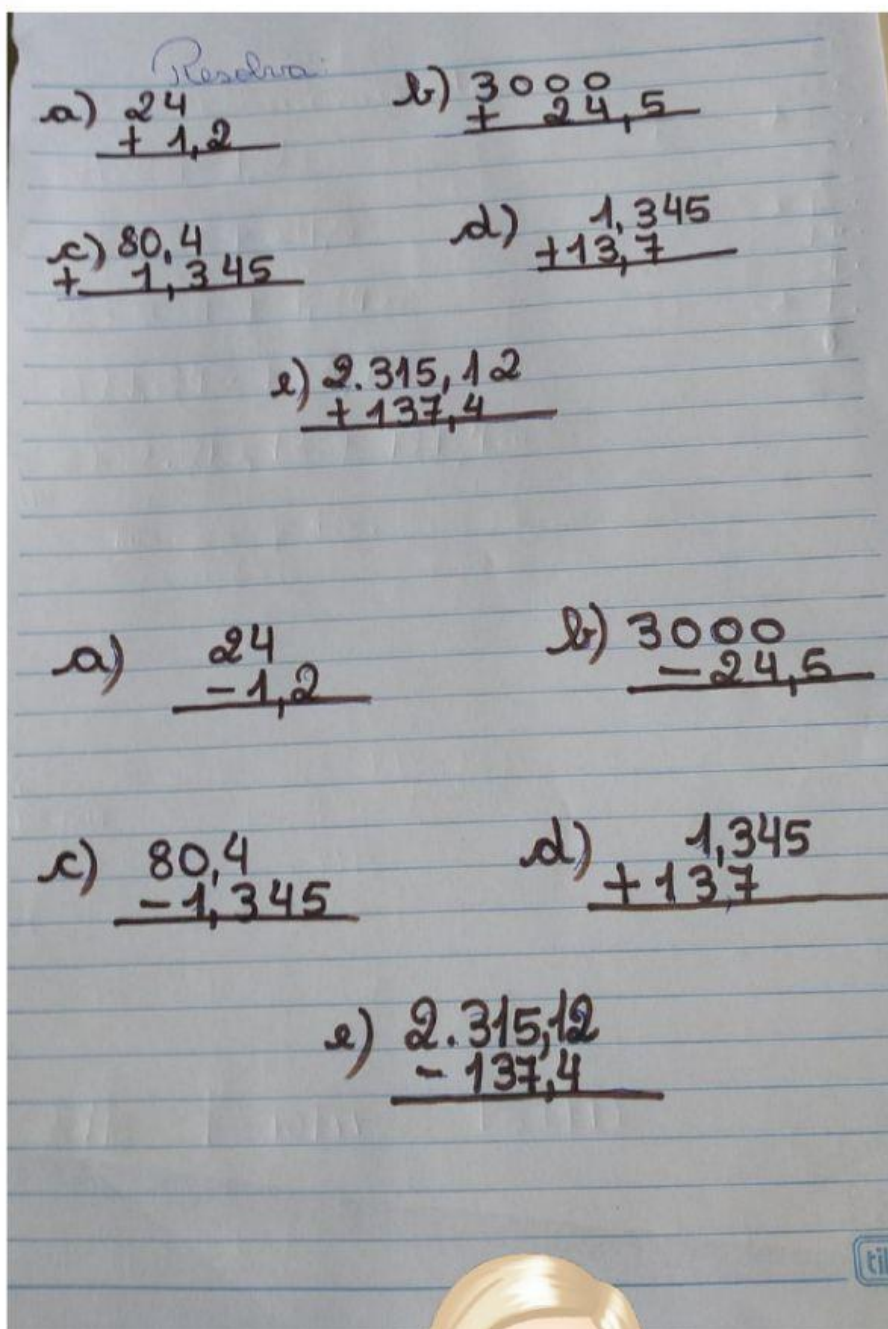 Resolva:
a) 24
+ 1,2
b) 3000
+ 24,5
c) 80,4
+ 1,345
d) 1,345
+13,7
e) 2.315,12
+ 137,4
a) 24
- 1,2
b) 3000
- 24,5
c) 80,4
- 1,345
d) 1,345
+ 13,7
e) 2.315,12
- 137,4